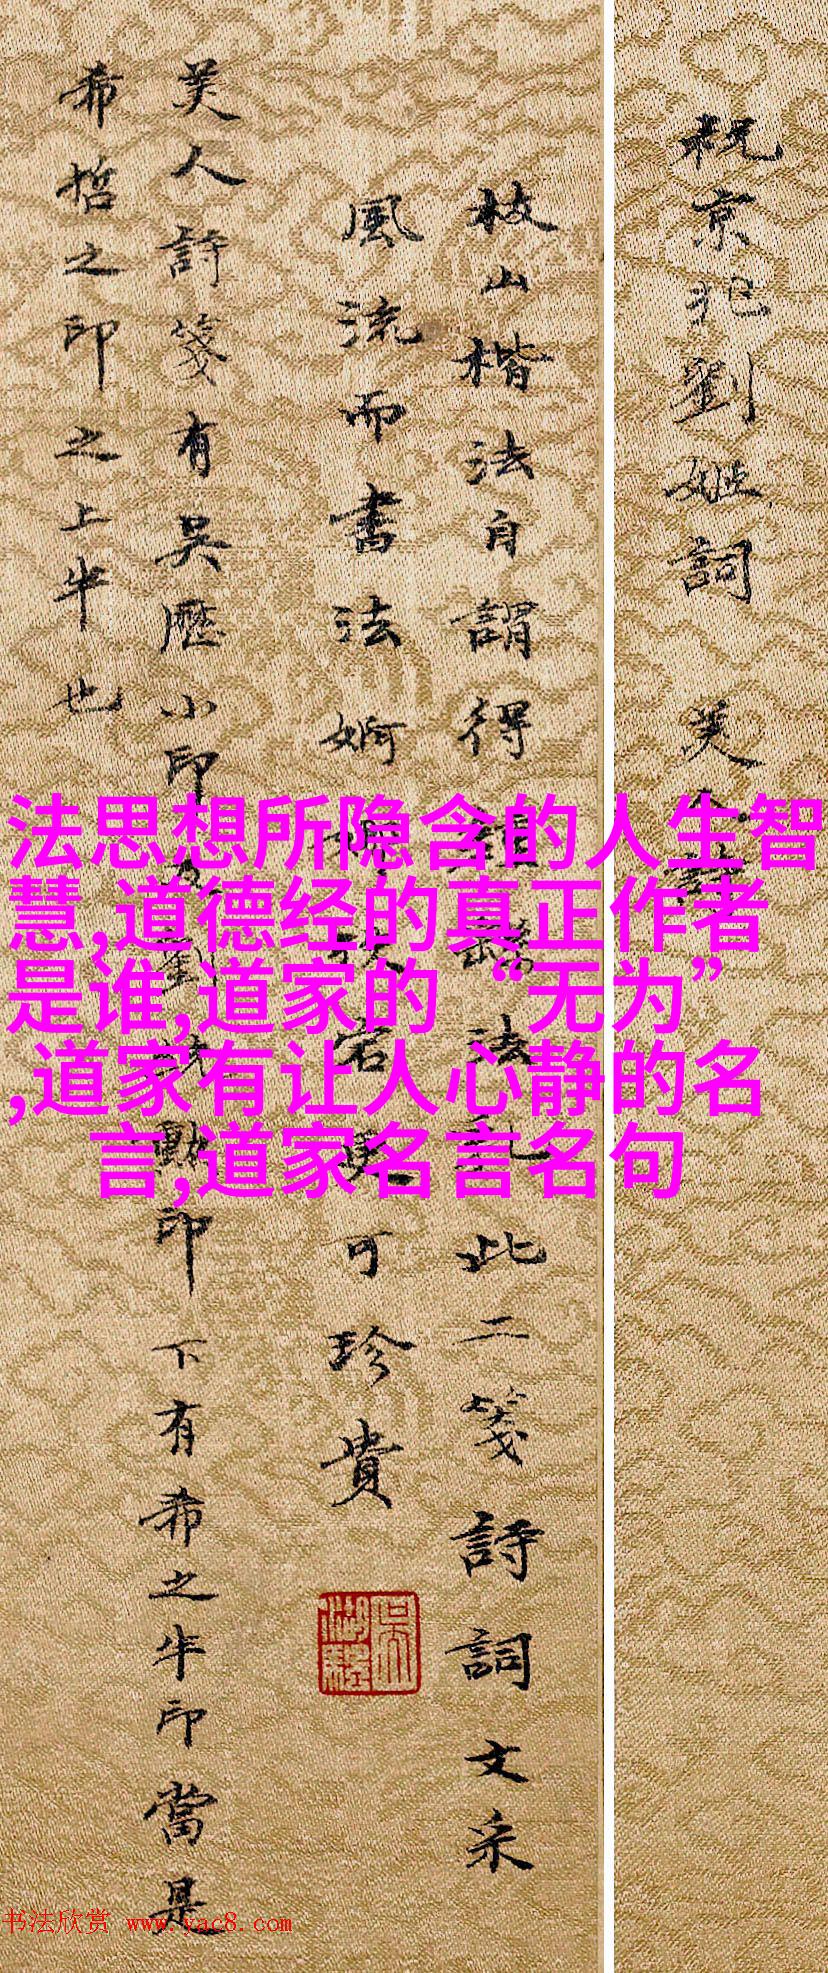 祝京兆劉姬詞 美人詩
枝山楷法自謂得法乳此二箋詩詞文采
風流而書法婀更可珍貴
美人詩箋有吳歷小印劉印下有希之半印當是
希哲之印之上半也
吳湖帆
法思想所隐含的人生智
慧,道德经的真正作者
是谁,道家的“无为”
,道家有让人心静的名
言,道家名言名句
书法欣赏 www.yac8.com